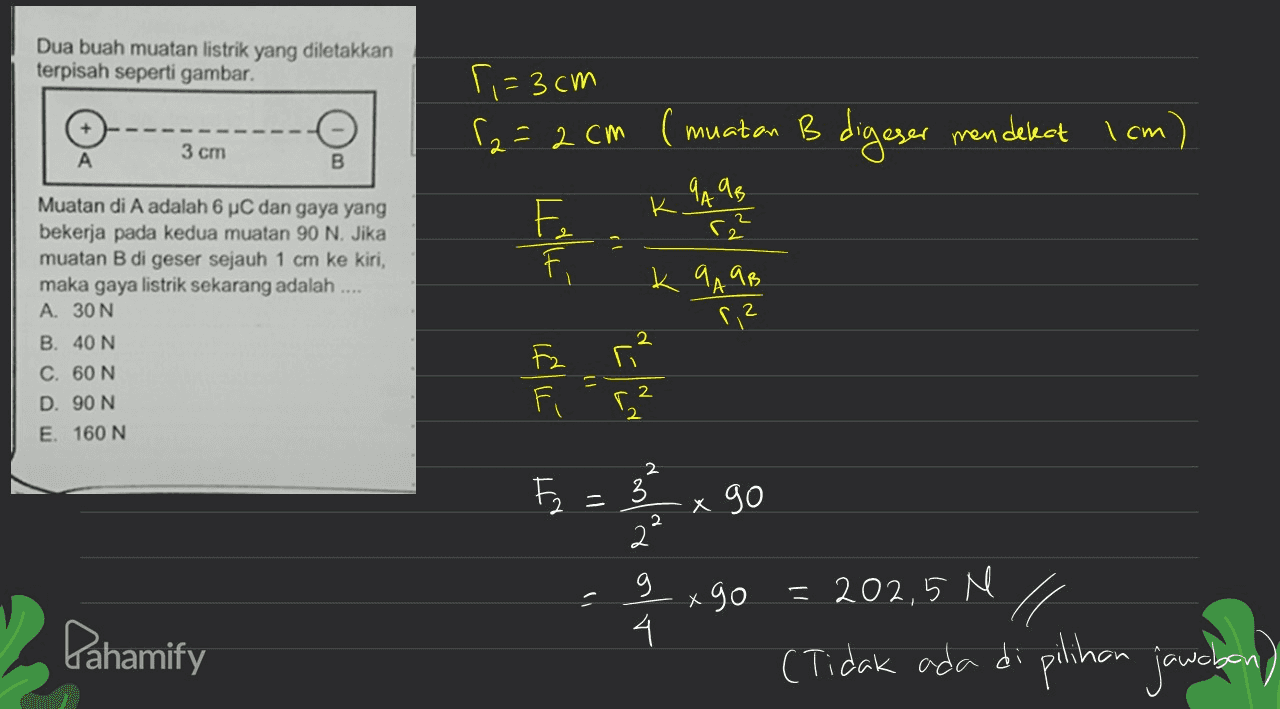 Dua buah muatan listrik yang diletakkan
terpisah seperti gambar.
+ −
3 cm
A B
Muatan di A adalah 6 µC dan gaya yang
bekerja pada kedua muatan 90 N. Jika
muatan B di geser sejauh 1 cm ke kiri,
maka gaya listrik sekarang adalah ....
A. 30 N
B. 40 N
C. 60 N
D. 90 N
E. 160 N
r₁ = 3 cm
r₂ = 2 cm (muatan B digeser mendekat 1 cm)
F₂/F₁ = (k qA qB / r₂²) / (k qA qB / r₁²)
F₂/F₁ = r₁²/r₂²
F₂ = 3²/2² x 90
= 9/4 x 90 = 202,5 N //
(Tidak ada di pilihan jawaban)
Pahamify